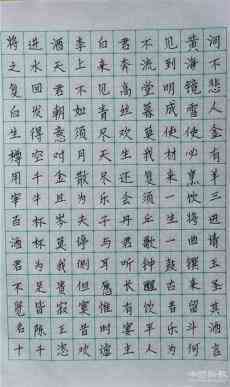 将进酒李白君不见黄河
之水天上来奔流到海不
复回君不见高堂明镜悲
白发朝如青丝暮成雪人
生得意须尽欢莫使使金
樽空对月天生我材必有
用千金散尽还复来烹羊
宰牛且为乐会须一饮三
百杯岑夫子丹丘生将进
酒杯莫停与君歌一曲请
君为我侧耳听钟鼓馔玉
不足贵但愿长醉古来圣
贤皆寂寞惟有饮者留其
名陈王昔时宴平乐斗酒
十千恣欢谑主人为何言